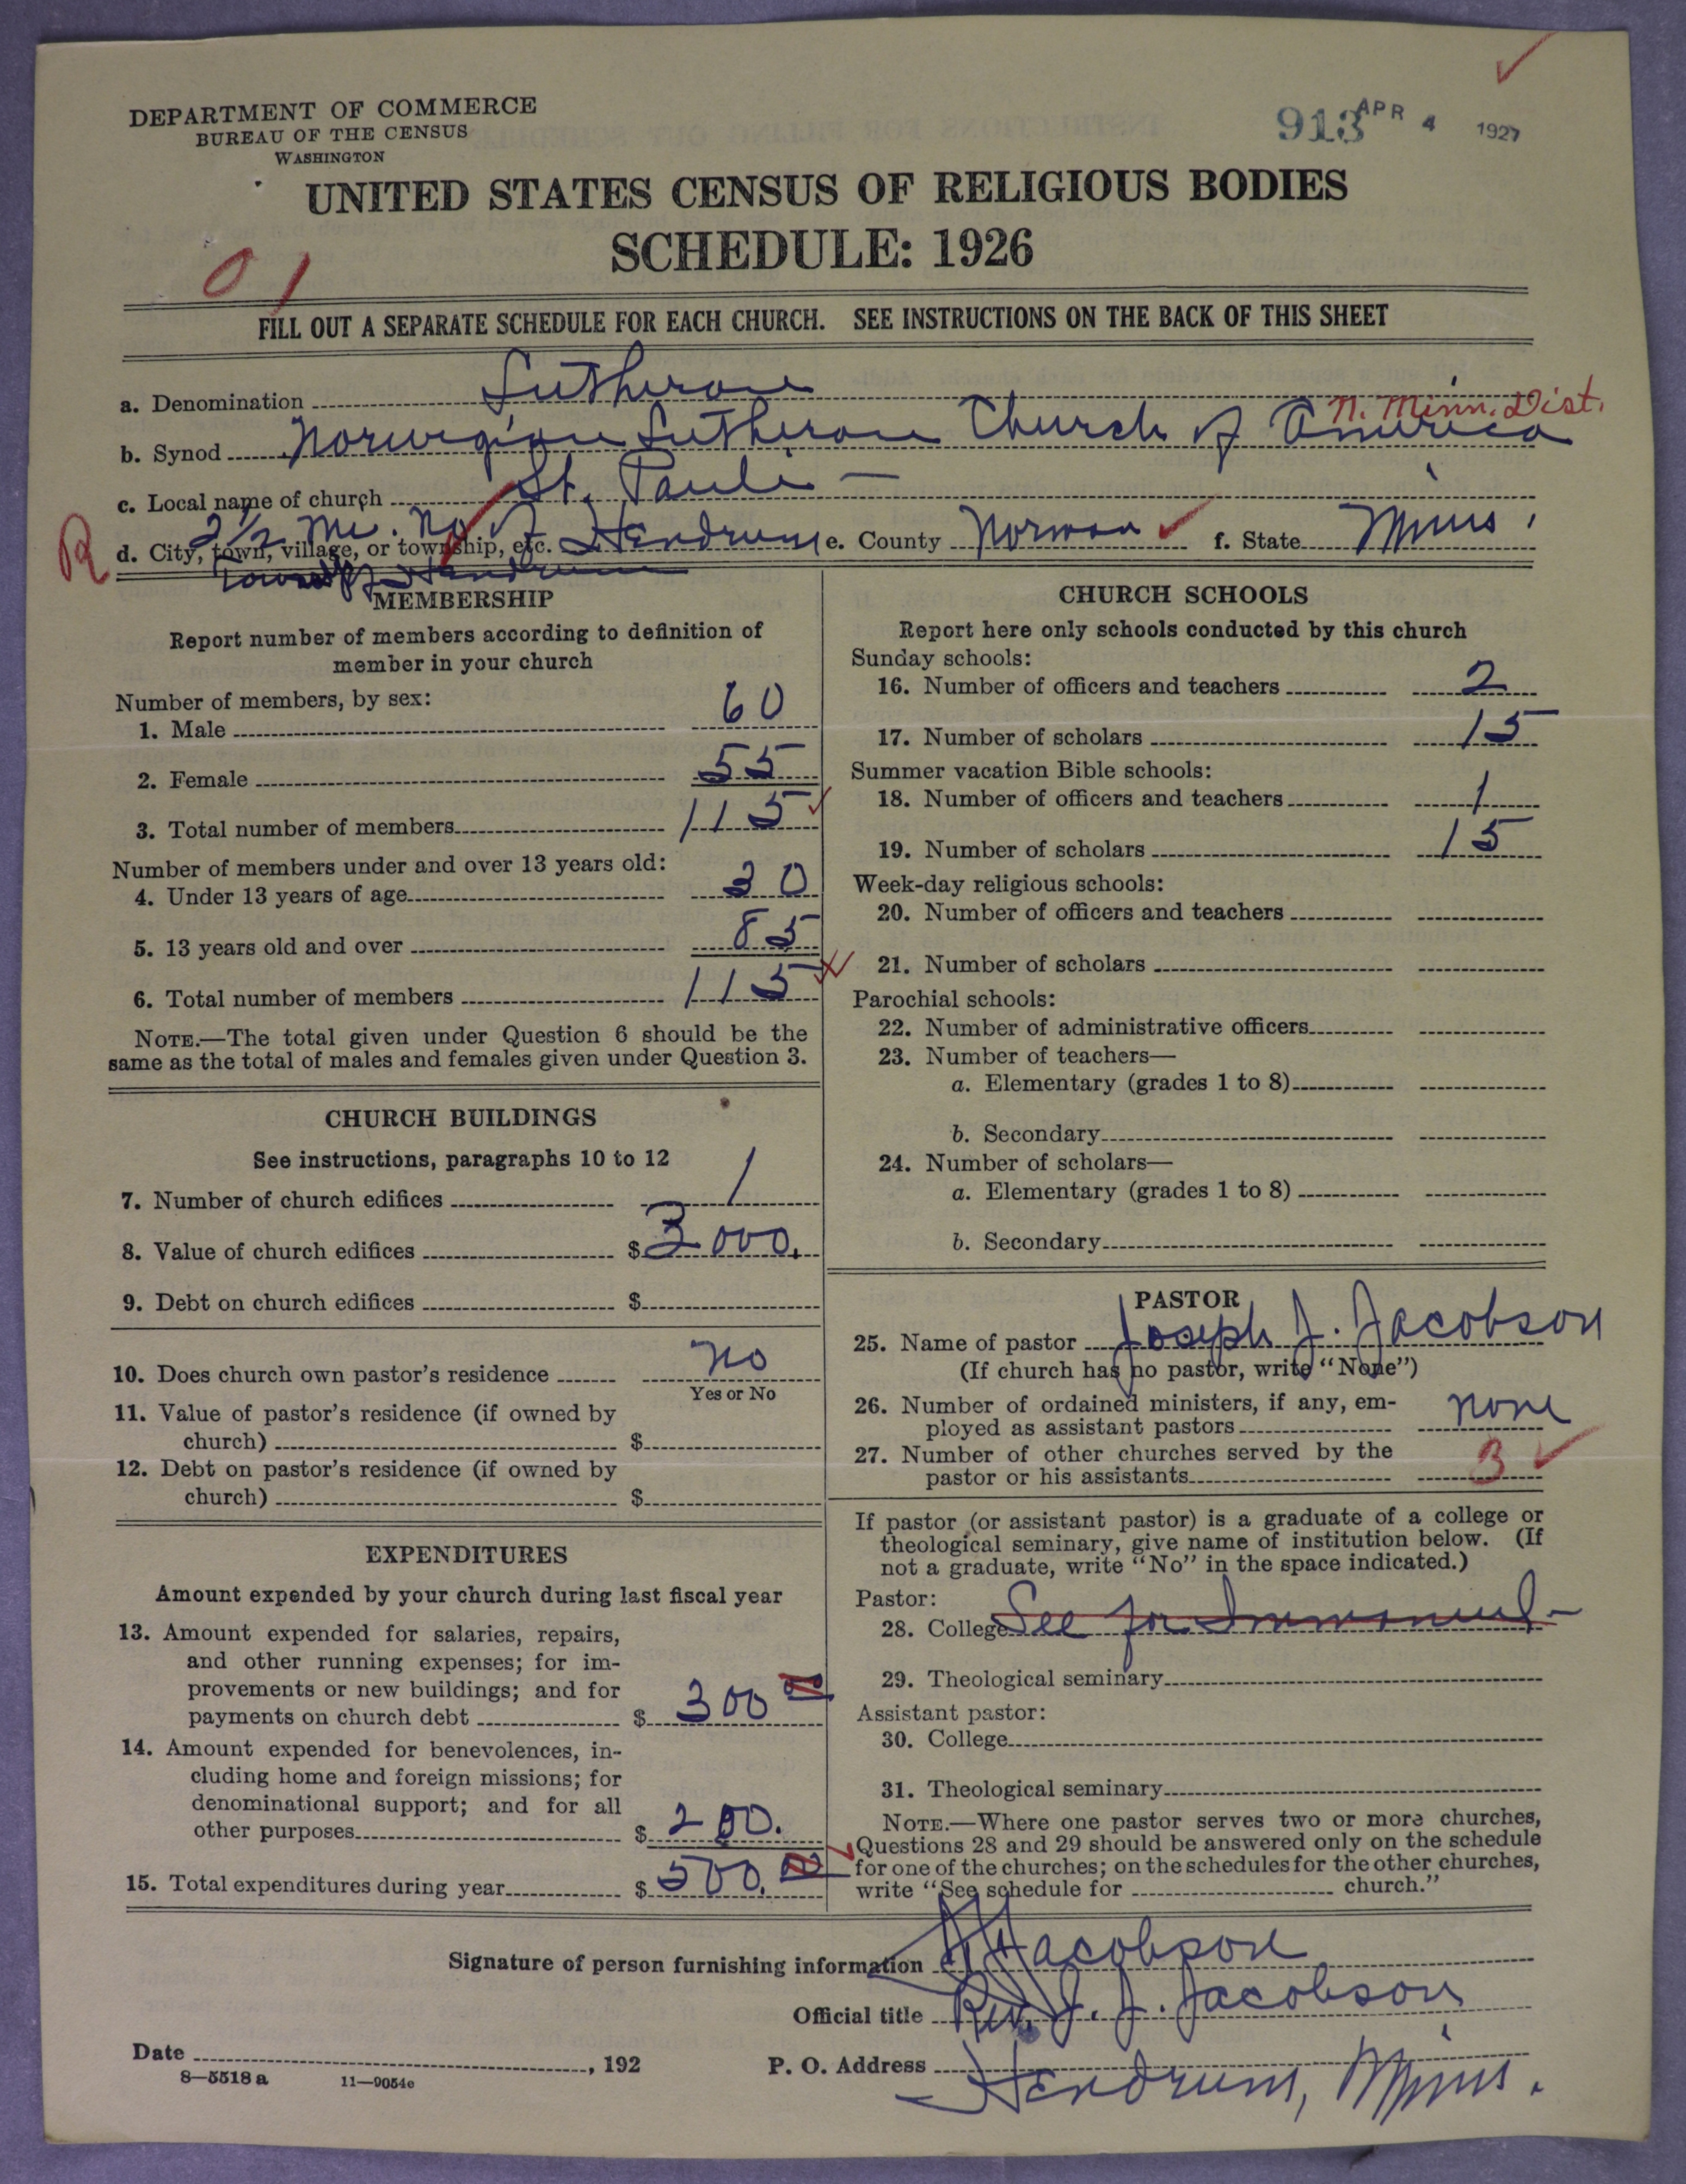 DEPARTMENT OF COMMERCE
BUREAU OF THE CENSUS
WASHINGTON
913 APR 4 1927
UNITED STATES CENSUS OF RELIGIOUS BODIES
SCHEDULE: 1926
01
FILL OUT A SEPARATE SCHEDULE FOR EACH CHURCH. SEE INSTRUCTIONS ON THE BACK OF THIS SHEET
a. Denomination Lutheran
N. Minn. Dist.
b. Synod Norwegian Lutheran Church of America
c. Local name of church St. Pauli —
R d. City, town, village, or township, etc. 2 1/2 Mi. No of Hendrum e. County Norman f. State Minn.
Hendrum
MEMBERSHIP
Report number of members according to definition of
member in your church
Number of members, by sex:
1. Male 60
2. Female 55
3. Total number of members 115
Number of members under and over 13 years old:
4. Under 13 years of age 30
5. 13 years old and over 85
6. Total number of members 115
NOTE.—The total given under Question 6 should be the
same as the total of males and females given under Question 3.
CHURCH BUILDINGS
See instructions, paragraphs 10 to 12
7. Number of church edifices 1
8. Value of church edifices $ 3000.
9. Debt on church edifices $
10. Does church own pastor's residence no
Yes or No
11. Value of pastor's residence (if owned by
church) $
12. Debt on pastor's residence (if owned by
church) $
EXPENDITURES
Amount expended by your church during last fiscal year
13. Amount expended for salaries, repairs,
and other running expenses; for im-
provements or new buildings; and for
payments on church debt $ 300 00
14. Amount expended for benevolences, in-
cluding home and foreign missions; for
denominational support; and for all
other purposes $ 200.
15. Total expenditures during year $ 500. 00
CHURCH SCHOOLS
Report here only schools conducted by this church
Sunday schools:
16. Number of officers and teachers 2
17. Number of scholars 15
Summer vacation Bible schools:
18. Number of officers and teachers 1
19. Number of scholars 15
Week-day religious schools:
20. Number of officers and teachers
21. Number of scholars
Parochial schools:
22. Number of administrative officers
23. Number of teachers—
a. Elementary (grades 1 to 8)
b. Secondary
24. Number of scholars—
a. Elementary (grades 1 to 8)
b. Secondary
PASTOR
25. Name of pastor Joseph J. Jacobson
(If church has no pastor, write "None")
26. Number of ordained ministers, if any, em-
ployed as assistant pastors none
27. Number of other churches served by the
pastor or his assistants 3
If pastor (or assistant pastor) is a graduate of a college or
theological seminary, give name of institution below. (If
not a graduate, write "No" in the space indicated.)
Pastor:
28. College See for Immanuel -
29. Theological seminary
Assistant pastor:
30. College
31. Theological seminary
NOTE.—Where one pastor serves two or more churches,
Questions 28 and 29 should be answered only on the schedule
for one of the churches; on the schedules for the other churches,
write "See schedule for church."
Signature of person furnishing information J J Jacobson
Official title Rev. J. J. Jacobson
Date , 192
P. O. Address Hendrum, Minn.
8—5518 a 11—9054c